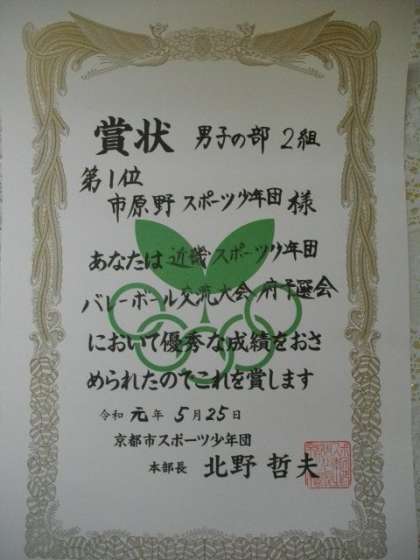 賞状 男子の部 2組
第1位
市原野スポーツ少年団 様
あなたは近畿スポーツ少年団
バレーボール交流大会 府予選会
において優秀な成績をおさ
められたのでこれを賞します
令和元年5月25日
京都市スポーツ少年団
本部長 北野哲夫